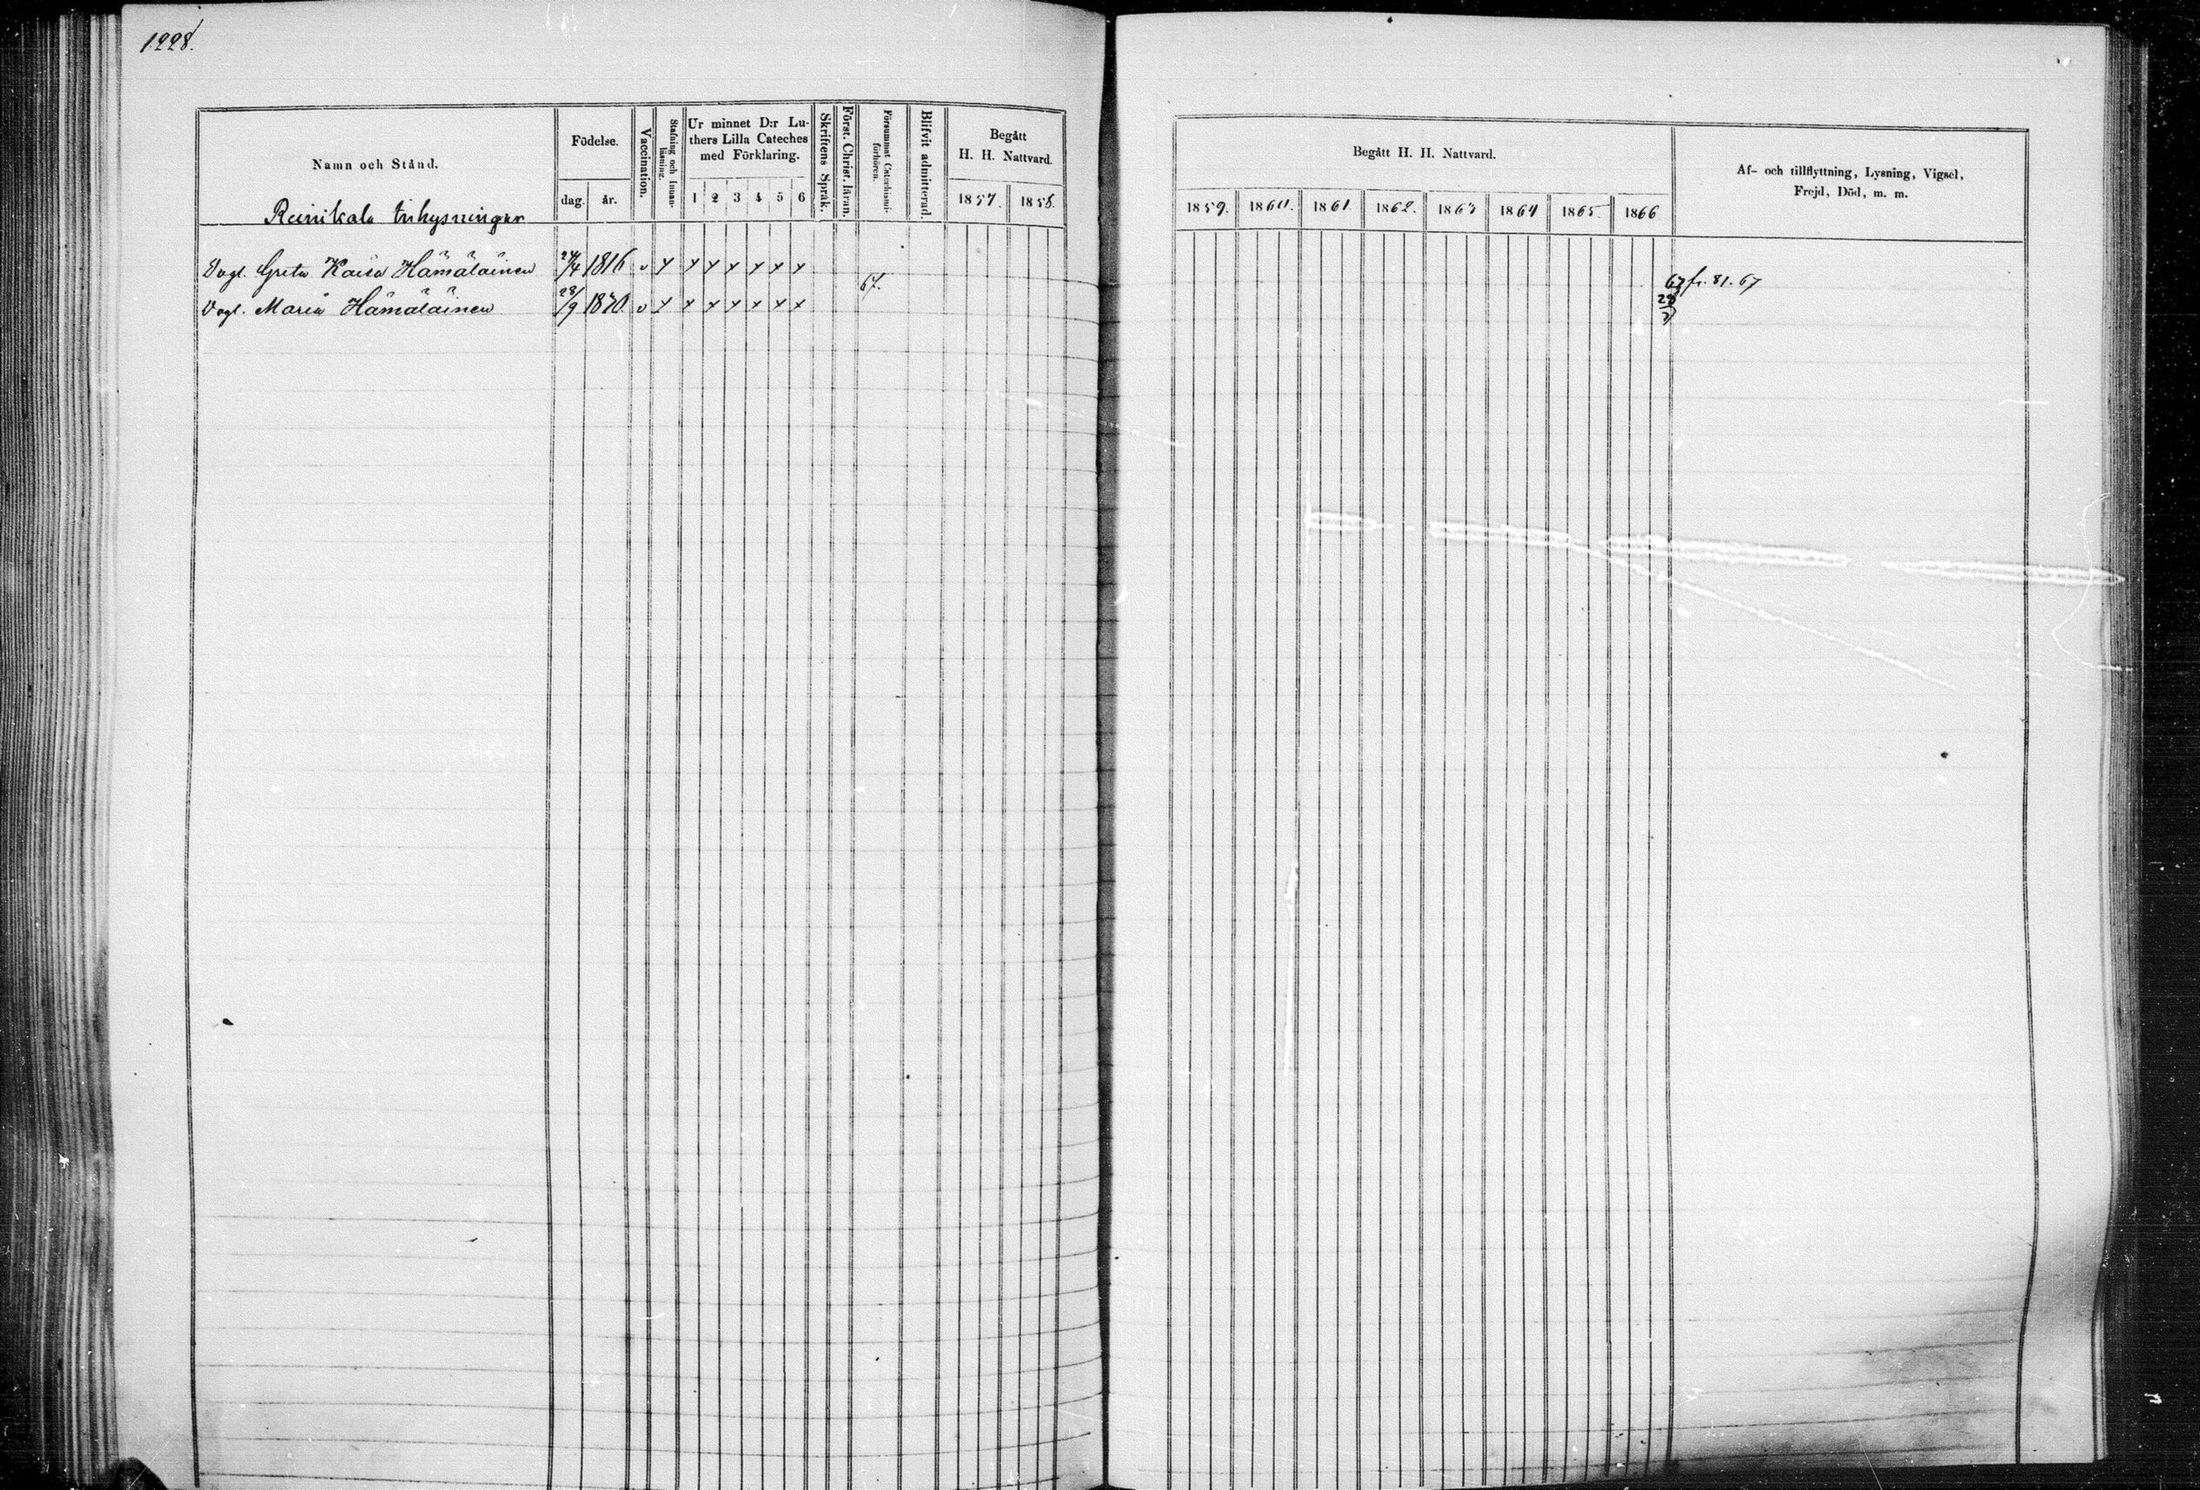 1228.
Namn och Stånd.
Födelse.
dag.
år.
Vaccination.
Stafning och Innanläsning.
Ur minnet D:r Luthers Lilla Cateches med Förklaring.
1 2 3 4 5 6
Skriftens Språk.
Först. Christ. läran.
Försummat Catechismiförhören.
Blifvit admitterad.
Begått
H. H. Nattvard.
1857. 1858.
Begått H. H. Nattvard.
1859. 1860. 1861. 1862. 1863 1864 1865. 1866
Af- och tillflyttning, Lysning, Vigsel,
Frejd, Död, m. m.
Reinikala Inhysningar
Greta Kaisa Hämäläinen 24/4 1816 v x x x x x x x
67.
67 fr. 81. 67
Maria Hämäläinen 28/9 1840 v x x x x x x x